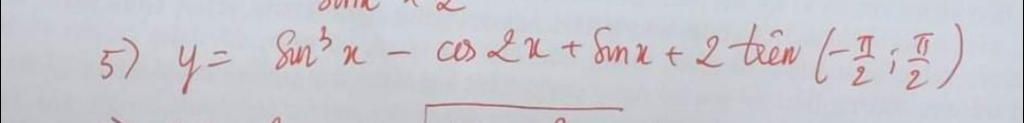 5) y = sin³x - cos 2x + sinx + 2 trên (-π/2 ; π/2)